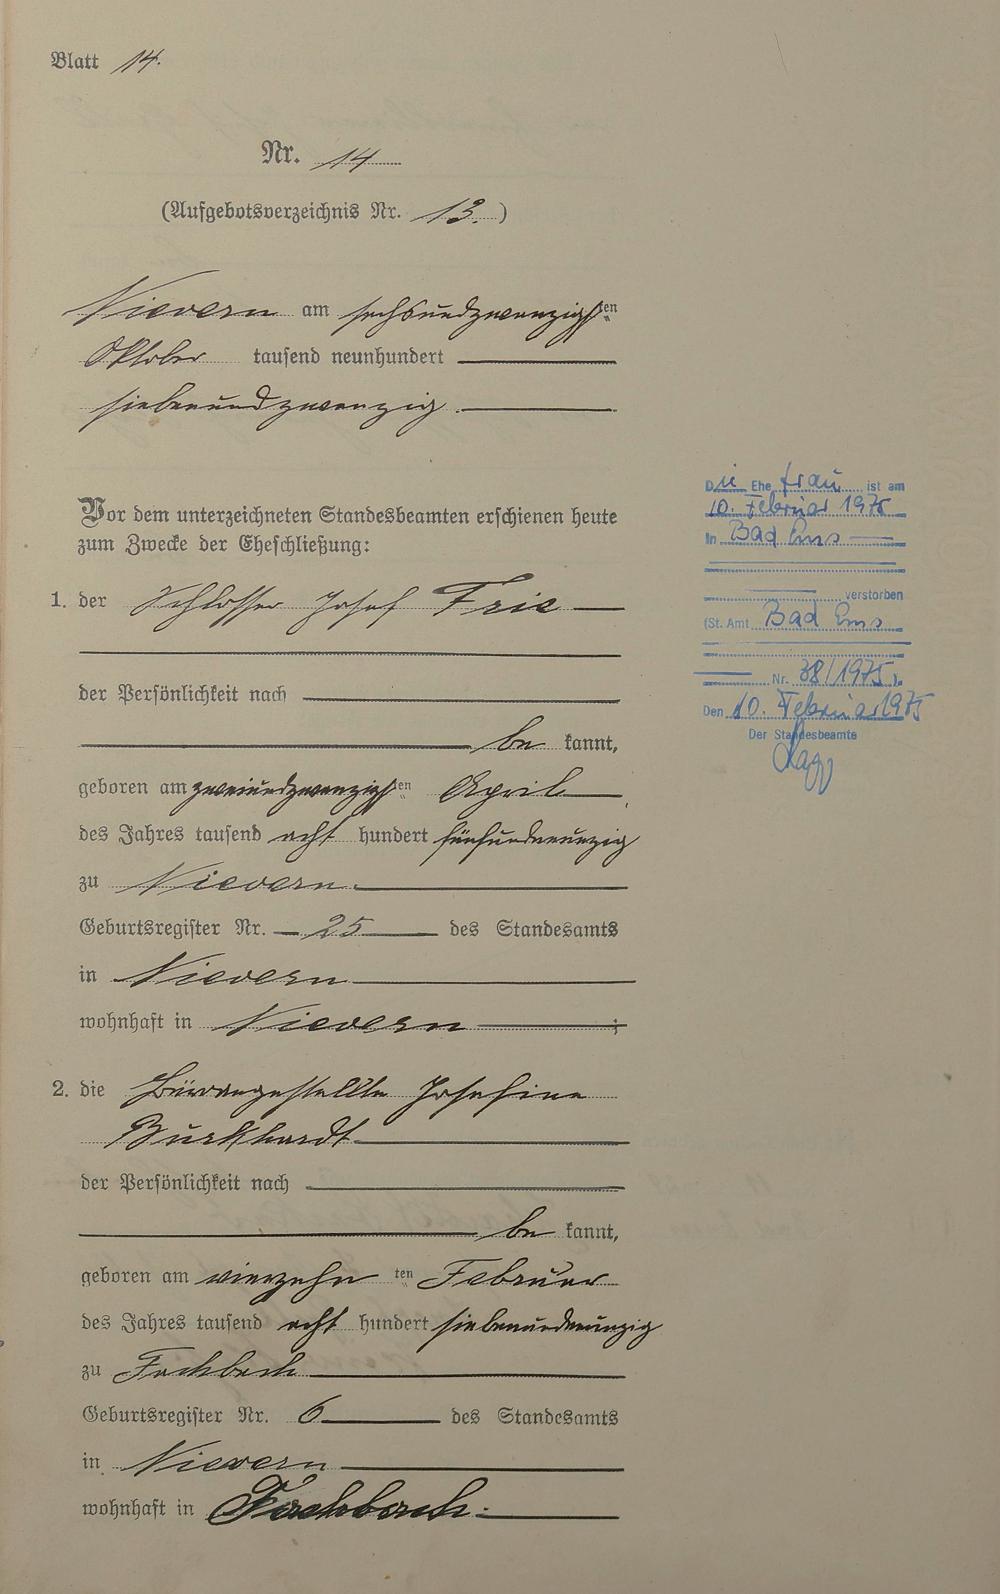 Blatt 14.
Nr. 14
(Aufgebotsverzeichnis Nr. 13.)
Nievern am sechsundzwanzigsten
Oktober tausend neunhundert
siebenundzwanzig.
Vor dem unterzeichneten Standesbeamten erschienen heute
zum Zwecke der Eheschließung:
1. der Schlosser Josef Frie
der Persönlichkeit nach
be kannt,
geboren am zweiundzwanzigsten April
des Jahres tausend acht hundert fünfundneunzig
zu Nievern.
Geburtsregister Nr. 25 des Standesamts
in Nievern
wohnhaft in Nievern;
2. die Büroangestellte Josefine
Burkhardt
der Persönlichkeit nach
be kannt,
geboren am vierzehn ten Februar
des Jahres tausend acht hundert siebenundneunzig
zu Fachbach
Geburtsregister Nr. 6 des Standesamts
in Nievern
wohnhaft in Fachbach.
Die Ehe frau ist am
10. Februar 1975
in Bad Ems
verstorben
(St. Amt Bad Ems
Nr. 38/1975).
Den 10. Februar 1975
Der Standesbeamte